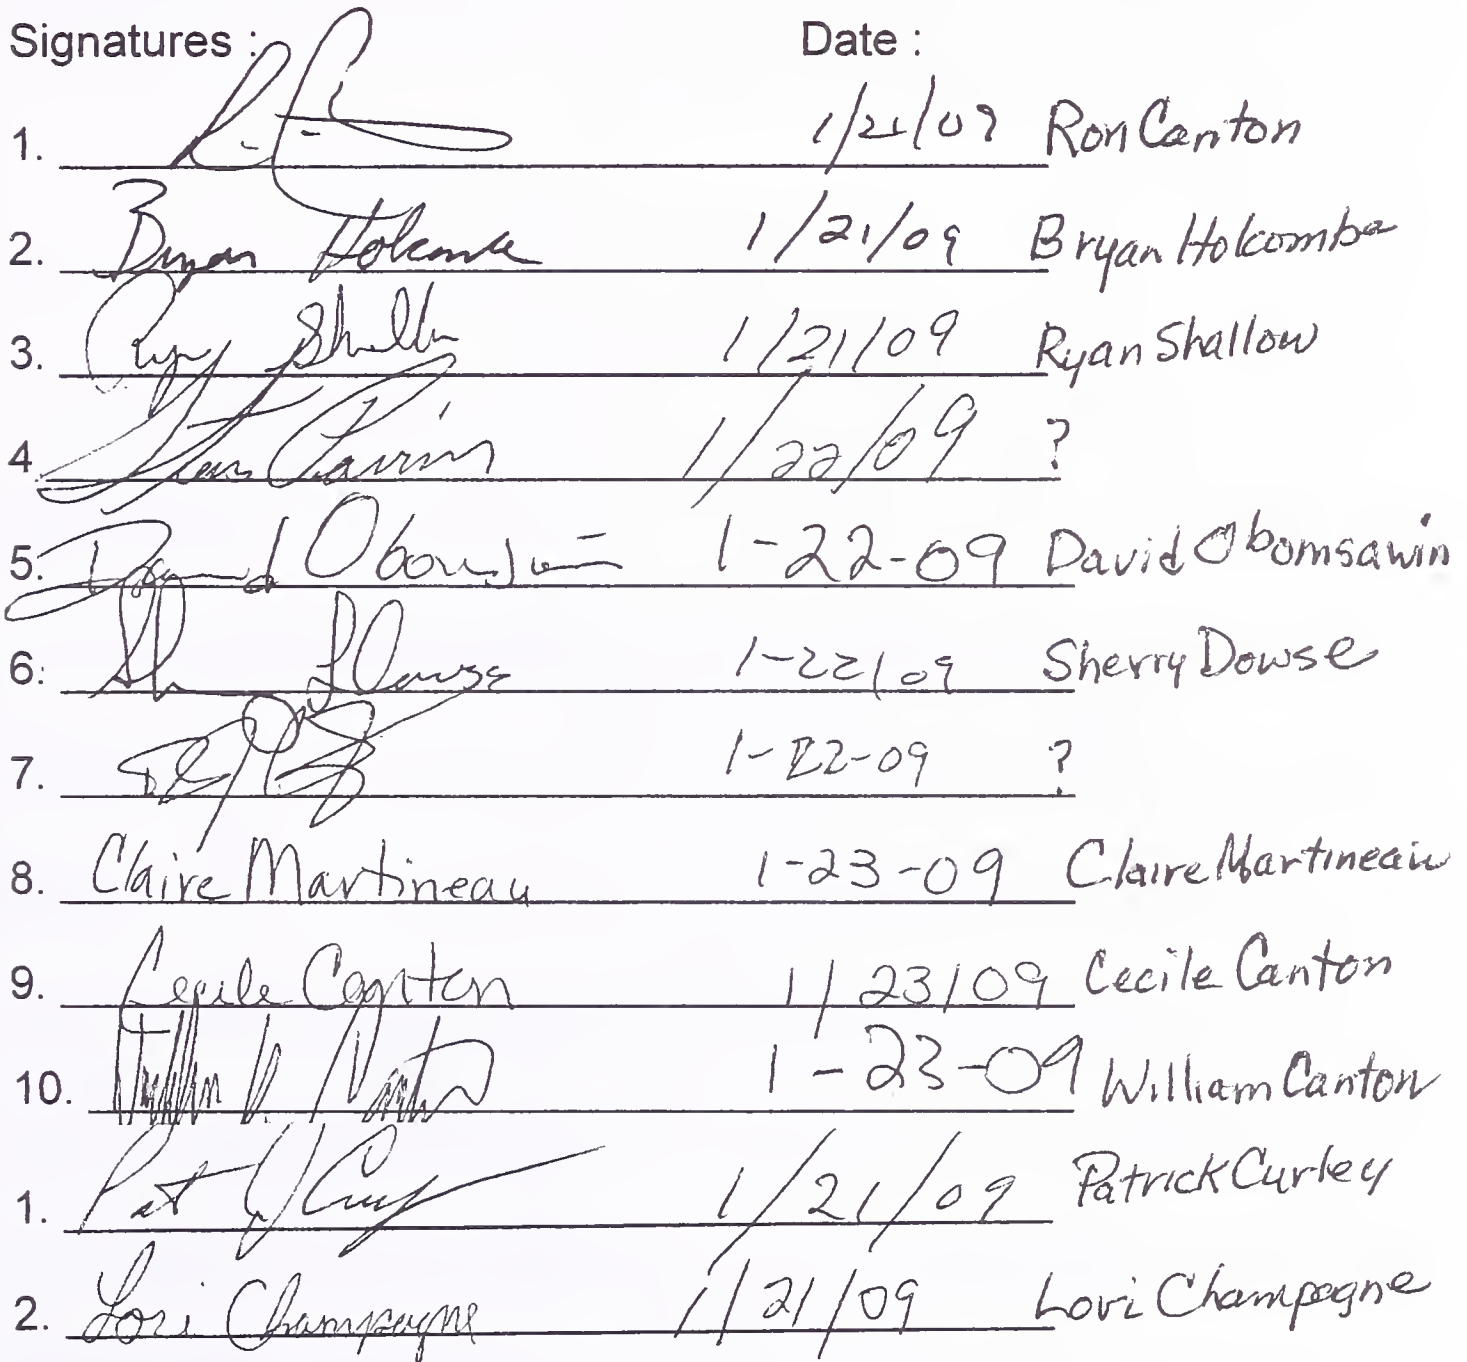 Signatures : Date :
1. 1/21/09 Ron Canton
2. Bryan Holcombe 1/21/09 Bryan Holcombe
3. Ryan Shallow 1/21/09 Ryan Shallow
4. 1/22/09 ?
5. David Obomsawin 1-22-09 David Obomsawin
6. Dowse 1-22/09 Sherry Dowse
7. 1-22-09 ?
8. Claire Martineau 1-23-09 Claire Martineau
9. Cecile Canton 1/23/09 Cecile Canton
10. 1-23-09 William Canton
1. Pat J Curley 1/21/09 Patrick Curley
2. Lori Champagne 1/21/09 Lori Champagne